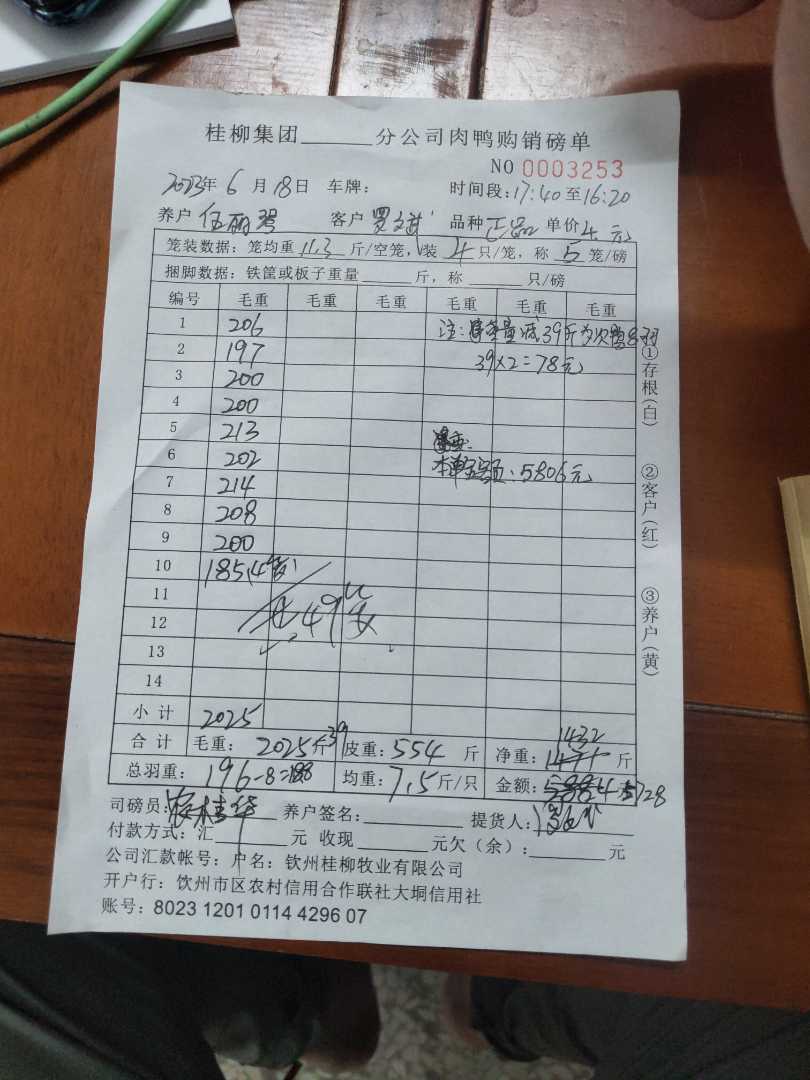 桂柳集团______分公司肉鸭购销磅单
NO 0003253
2023年 6 月 18日 车牌: 时间段:17:40至16:20
养户 伍丽琴 客户 罗文斌 品种 正品 单价 4 元
笼装数据: 笼均重 11.3 斤/空笼, 装 4 只/笼, 称 5 笼/磅
捆脚数据: 铁筐或板子重量______斤, 称______只/磅
编号 毛重 毛重 毛重 毛重 毛重 毛重
1 206 注: 净重量减39斤为次鸭8羽
2 197 39×2=78元
3 200
4 200
5 213
6 202 本单金额: 5806元
7 214
8 208
9 200
10 185(4笼)
11
12 共49笼
13
14
小计 2025
合计 毛重: 2025斤 39 皮重: 554 斤 净重: 1471 1432 斤
总羽重: 196-8=188 均重: 7.5斤/只 金额: 5884 5728
司磅员: 养户签名:______ 提货人:
付款方式: 汇______元 收现______元欠(余): ______元
公司汇款帐号: 户名: 钦州桂柳牧业有限公司
开户行: 饮州市区农村信用合作联社大垌信用社
账号: 8023 1201 0114 4296 07
①存根(白)
②客户(红)
③养户(黄)